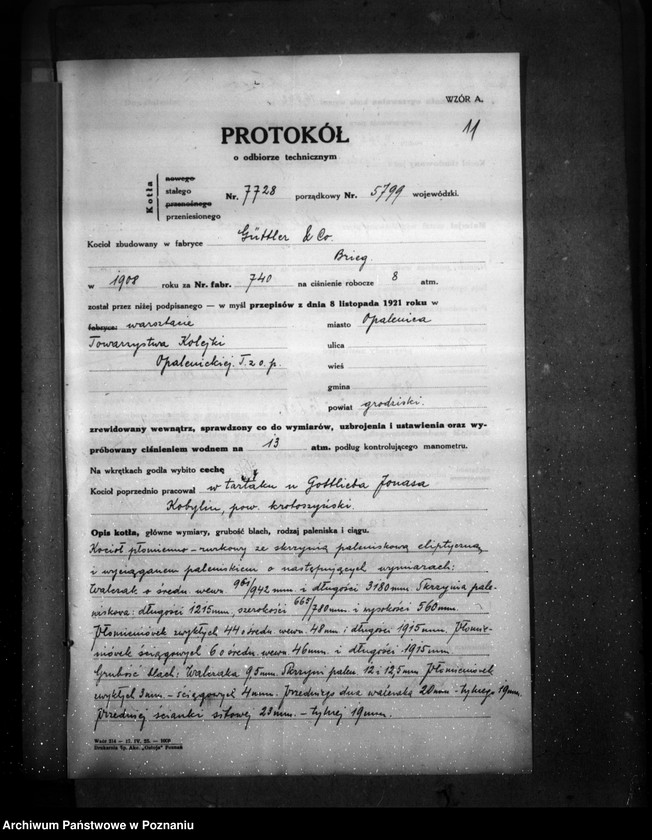 WZÓR A.
11
PROTOKÓŁ
o odbiorze technicznym
Kotła
nowego
stałego
przenośnego
przeniesionego
Nr. 7728 porządkowy Nr. 5799 wojewódzki.
Kocioł zbudowany w fabryce Güttler & Co.
Brieg.
w 1908 roku za Nr. fabr. 740 na ciśnienie robocze 8 atm.
został przez niżej podpisanego — w myśl przepisów z dnia 8 listopada 1921 roku w
fabryce: warsztacie
Towarzystwa Kolejki
Opalenickiej. T. z o. p.
miasto Opalenica
ulica
wieś
gmina
powiat grodziski.
zrewidowany wewnątrz, sprawdzony co do wymiarów, uzbrojenia i ustawienia oraz wy-
próbowany ciśnieniem wodnem na 13 atm. podług kontrolującego manometru.
Na wkrętkach godła wybito cechę
Kocioł poprzednio pracował w tartaku u Gottlieba Jonasa
Kobylin, pow. krotoszyński.
Opis kotła, główne wymiary, grubość blach, rodzaj paleniska i ciągu.
Kocioł płomienno-rurkowy ze skrzynią paleniskową eliptyczną
i wyciąganem paleniskiem o następujących wymiarach:
Walczak o średn. wewn. /942 mm. i długości 3180 mm. Skrzynia pale-
niskowa: długości 1215 mm, szerokości 665/780 mm. i wysokości 560 mm.
Płomieniówek zwykłych 44 o średn. wewn. 48 mm i długości 1915 mm. Płomie-
niówek ściągowych 6 o średn. wewn. 46 mm. i długości 1915 mm.
Grubość blach: Walczaka 9,5 mm. Skrzyni palen. 12 i 12,5 mm. Płomieniówek
zwykłych 3 mm. - ściągowych 4 mm. Przedniego dna walczaka 20 mm - tylnego 19 mm.
Przedniej ścianki sitowej 23 mm. - tylnej 19 mm.
Wzór 214 — 17. IV. 25. — 1000
Drukarnia Sp. Akc. „Ostoja" Poznań
Archiwum Państwowe w Poznaniu